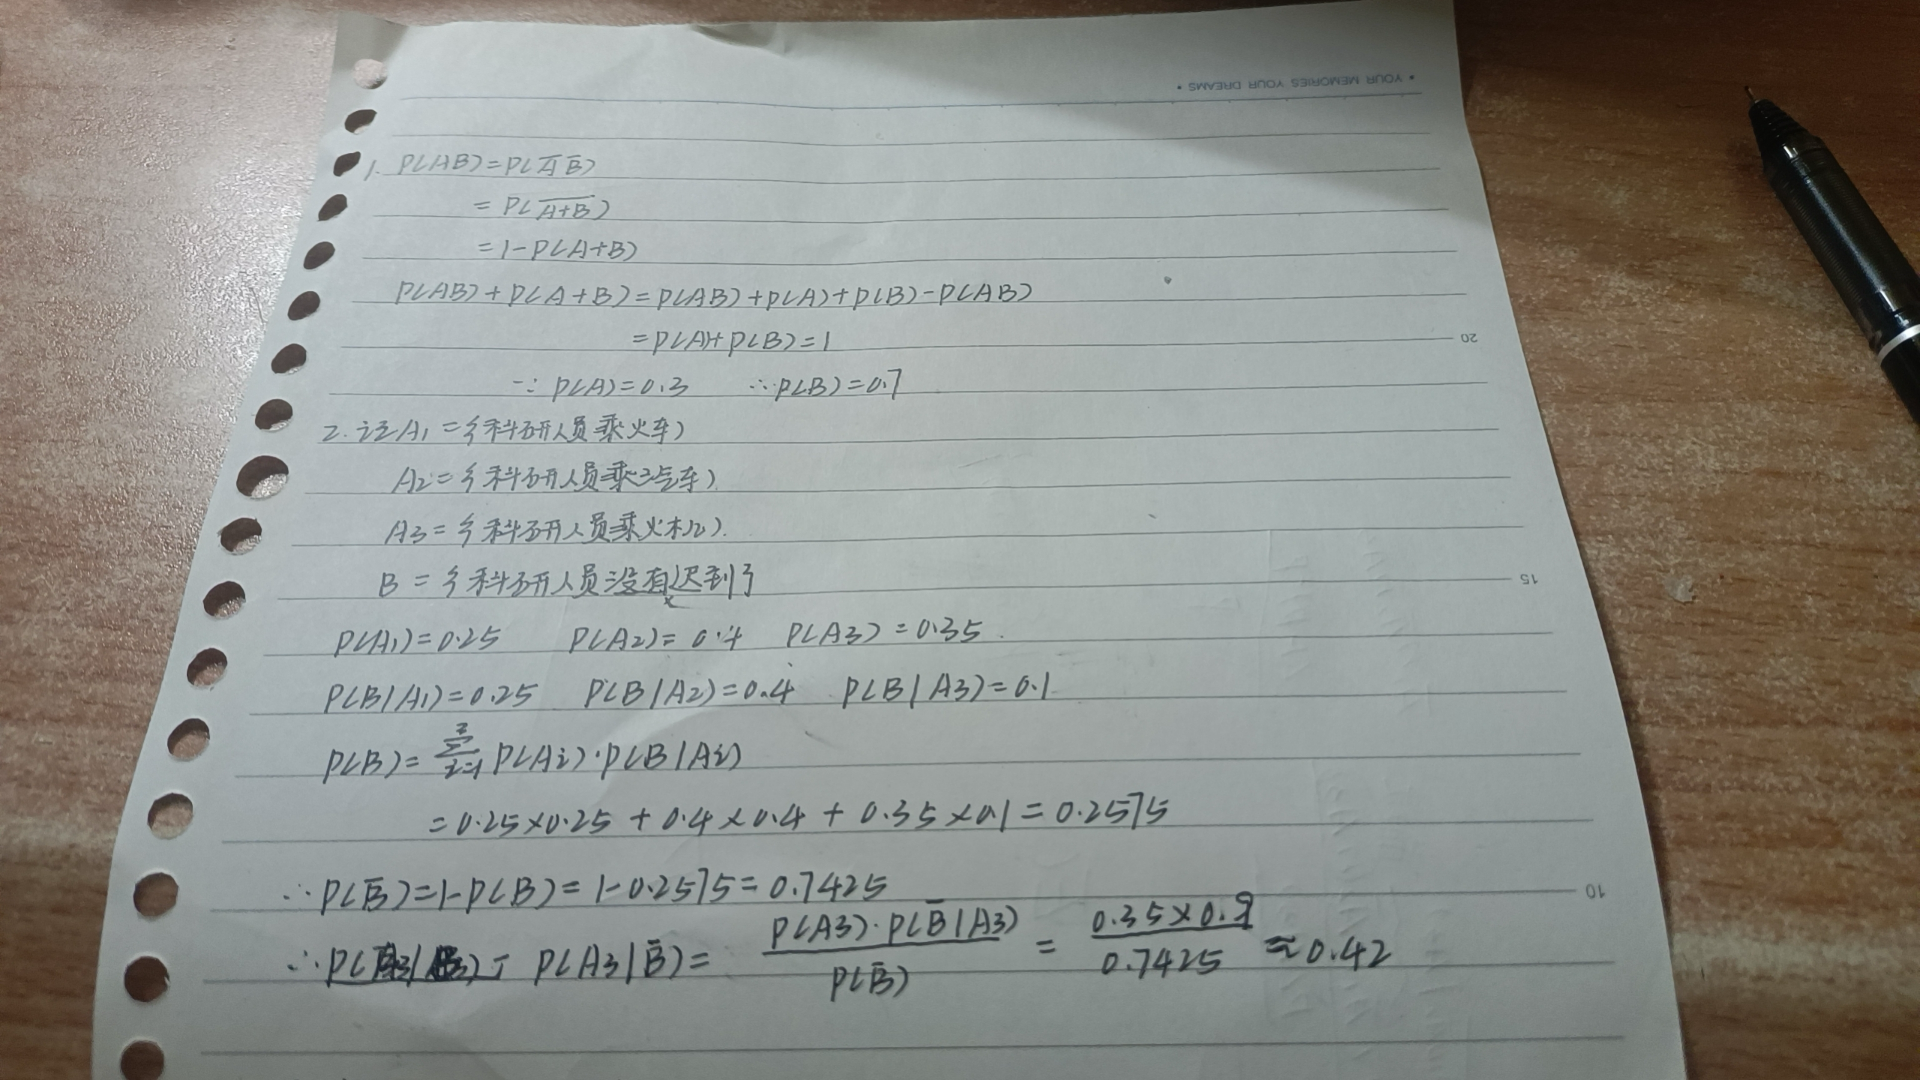 • YOUR MEMORIES YOUR DREAMS •
1. P(AB)=P(A̅ B̅)
= P(\overline{A+B})
=1-P(A+B)
P(AB)+P(A+B)=P(AB)+P(A)+P(B)-P(AB)
=P(A)+P(B)=1
∵ P(A)=0.3 ∴P(B)=0.7
20
2. 记A₁={科研人员乘火车}
A₂={科研人员乘汽车}
A₃={科研人员乘火机}
B={科研人员没有迟到}
15
P(A₁)=0.25 P(A₂)=0.4 P(A₃)=0.35
P(B|A₁)=0.25 P(B|A₂)=0.4 P(B|A₃)=0.1
P(B)=\sum_{i=1}^{3} P(Ai)·P(B|Ai)
=0.25×0.25+0.4×0.4+0.35×0.1=0.2575
∴P(B̅)=1-P(B)=1-0.2575=0.7425
10
∴ P(A₃|B̅)= \frac{P(A₃)·P(B̅|A₃)}{P(B̅)} = \frac{0.35×0.9}{0.7425} ≈0.42